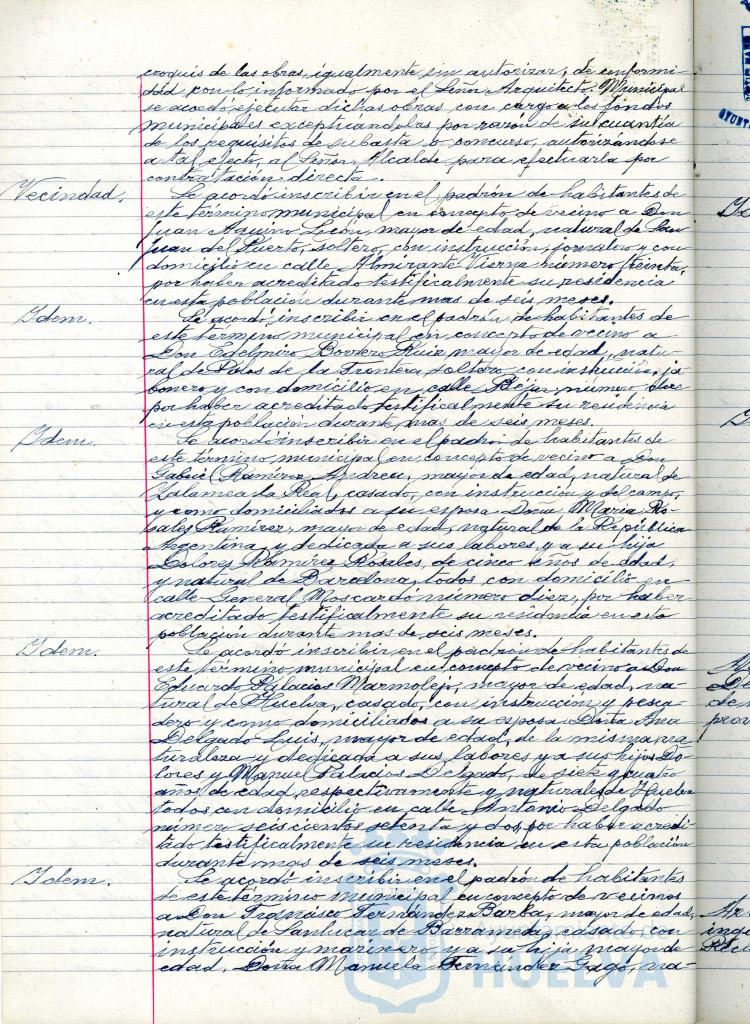 croquis de las obras, igualmente sin autorizar, de conformi-
dad con lo informado por el Señor Arquitecto Municipal
se acordó ejecutar dichas obras con cargo a los fondos
municipales exceptuándolas por razón de su cuantía
de los requisitos de subasta o concurso, autorizándose
a tal efecto, al Señor Alcalde para efectuarla por
contratación directa.
Vecindad. Se acordó inscribir en el padrón de habitantes de
este término municipal en concepto de vecino a Don
Juan Aquino León, mayor de edad, natural de San
Juan del Puerto, soltero, con instrucción, jornalero y con
domicilio en calle Almirante Vierna número treinta,
por haber acreditado testificalmente su residencia
en esta población durante mas de seis meses.
Idem. Se acordó inscribir en el padrón de habitantes de
este término municipal en concepto de vecino a
Don Edelmiro Borrero Ruiz, mayor de edad, natu-
ral de Palos de la Frontera, soltero con instrucción, ja-
bonero y con domicilio en calle Béjar, número
por haber acreditado testificalmente su residencia
en esta población durante mas de seis meses.
Idem. Se acordó inscribir en el padrón de habitantes de
este término municipal en concepto de vecino a Don
Gabriel Ramírez Andreu, mayor de edad, natural de
Zalamea la Real, casado, con instrucción y del campo,
y como domiciliados a su esposa Doña María Ro-
sales Ramírez, mayor de edad, natural de la República
Argentina y dedicada a sus labores, y a su hija
Dolores Ramírez Rosales, de cinco años de edad,
y natural de Barcelona, todos con domicilio en
calle General Moscardó número diez, por haber
acreditado testificalmente su residencia en esta
población durante mas de seis meses.
Idem. Se acordó inscribir en el padrón de habitantes de
este término municipal en concepto de vecino a Don
Eduardo Palacios Marmolejo, mayor de edad, na-
tural de Huelva, casado, con instrucción y pesca-
dero y como domiciliados a su esposa Doña Ana
Delgado Luis, mayor de edad, de la misma na-
turaleza y dedicada a sus labores y a sus hijos Do-
lores y Manuel Palacios Delgado, de siete y cuatro
años de edad respectivamente y naturales de Huelva
todos con domicilio en calle Antonio Delgado
número seiscientos setenta y dos, por haber acredi-
tado testificalmente su residencia en esta población
durante mas de seis meses.
Idem. Se acordó inscribir en el padrón de habitantes
de este término municipal en concepto de vecinos
a Don Francisco Fernández Barba, mayor de edad,
natural de Sanlúcar de Barrameda, casado, con
instrucción y marinero, y a su hija mayor de
edad, Doña Manuela Fernández Gago, na-
HUELVA